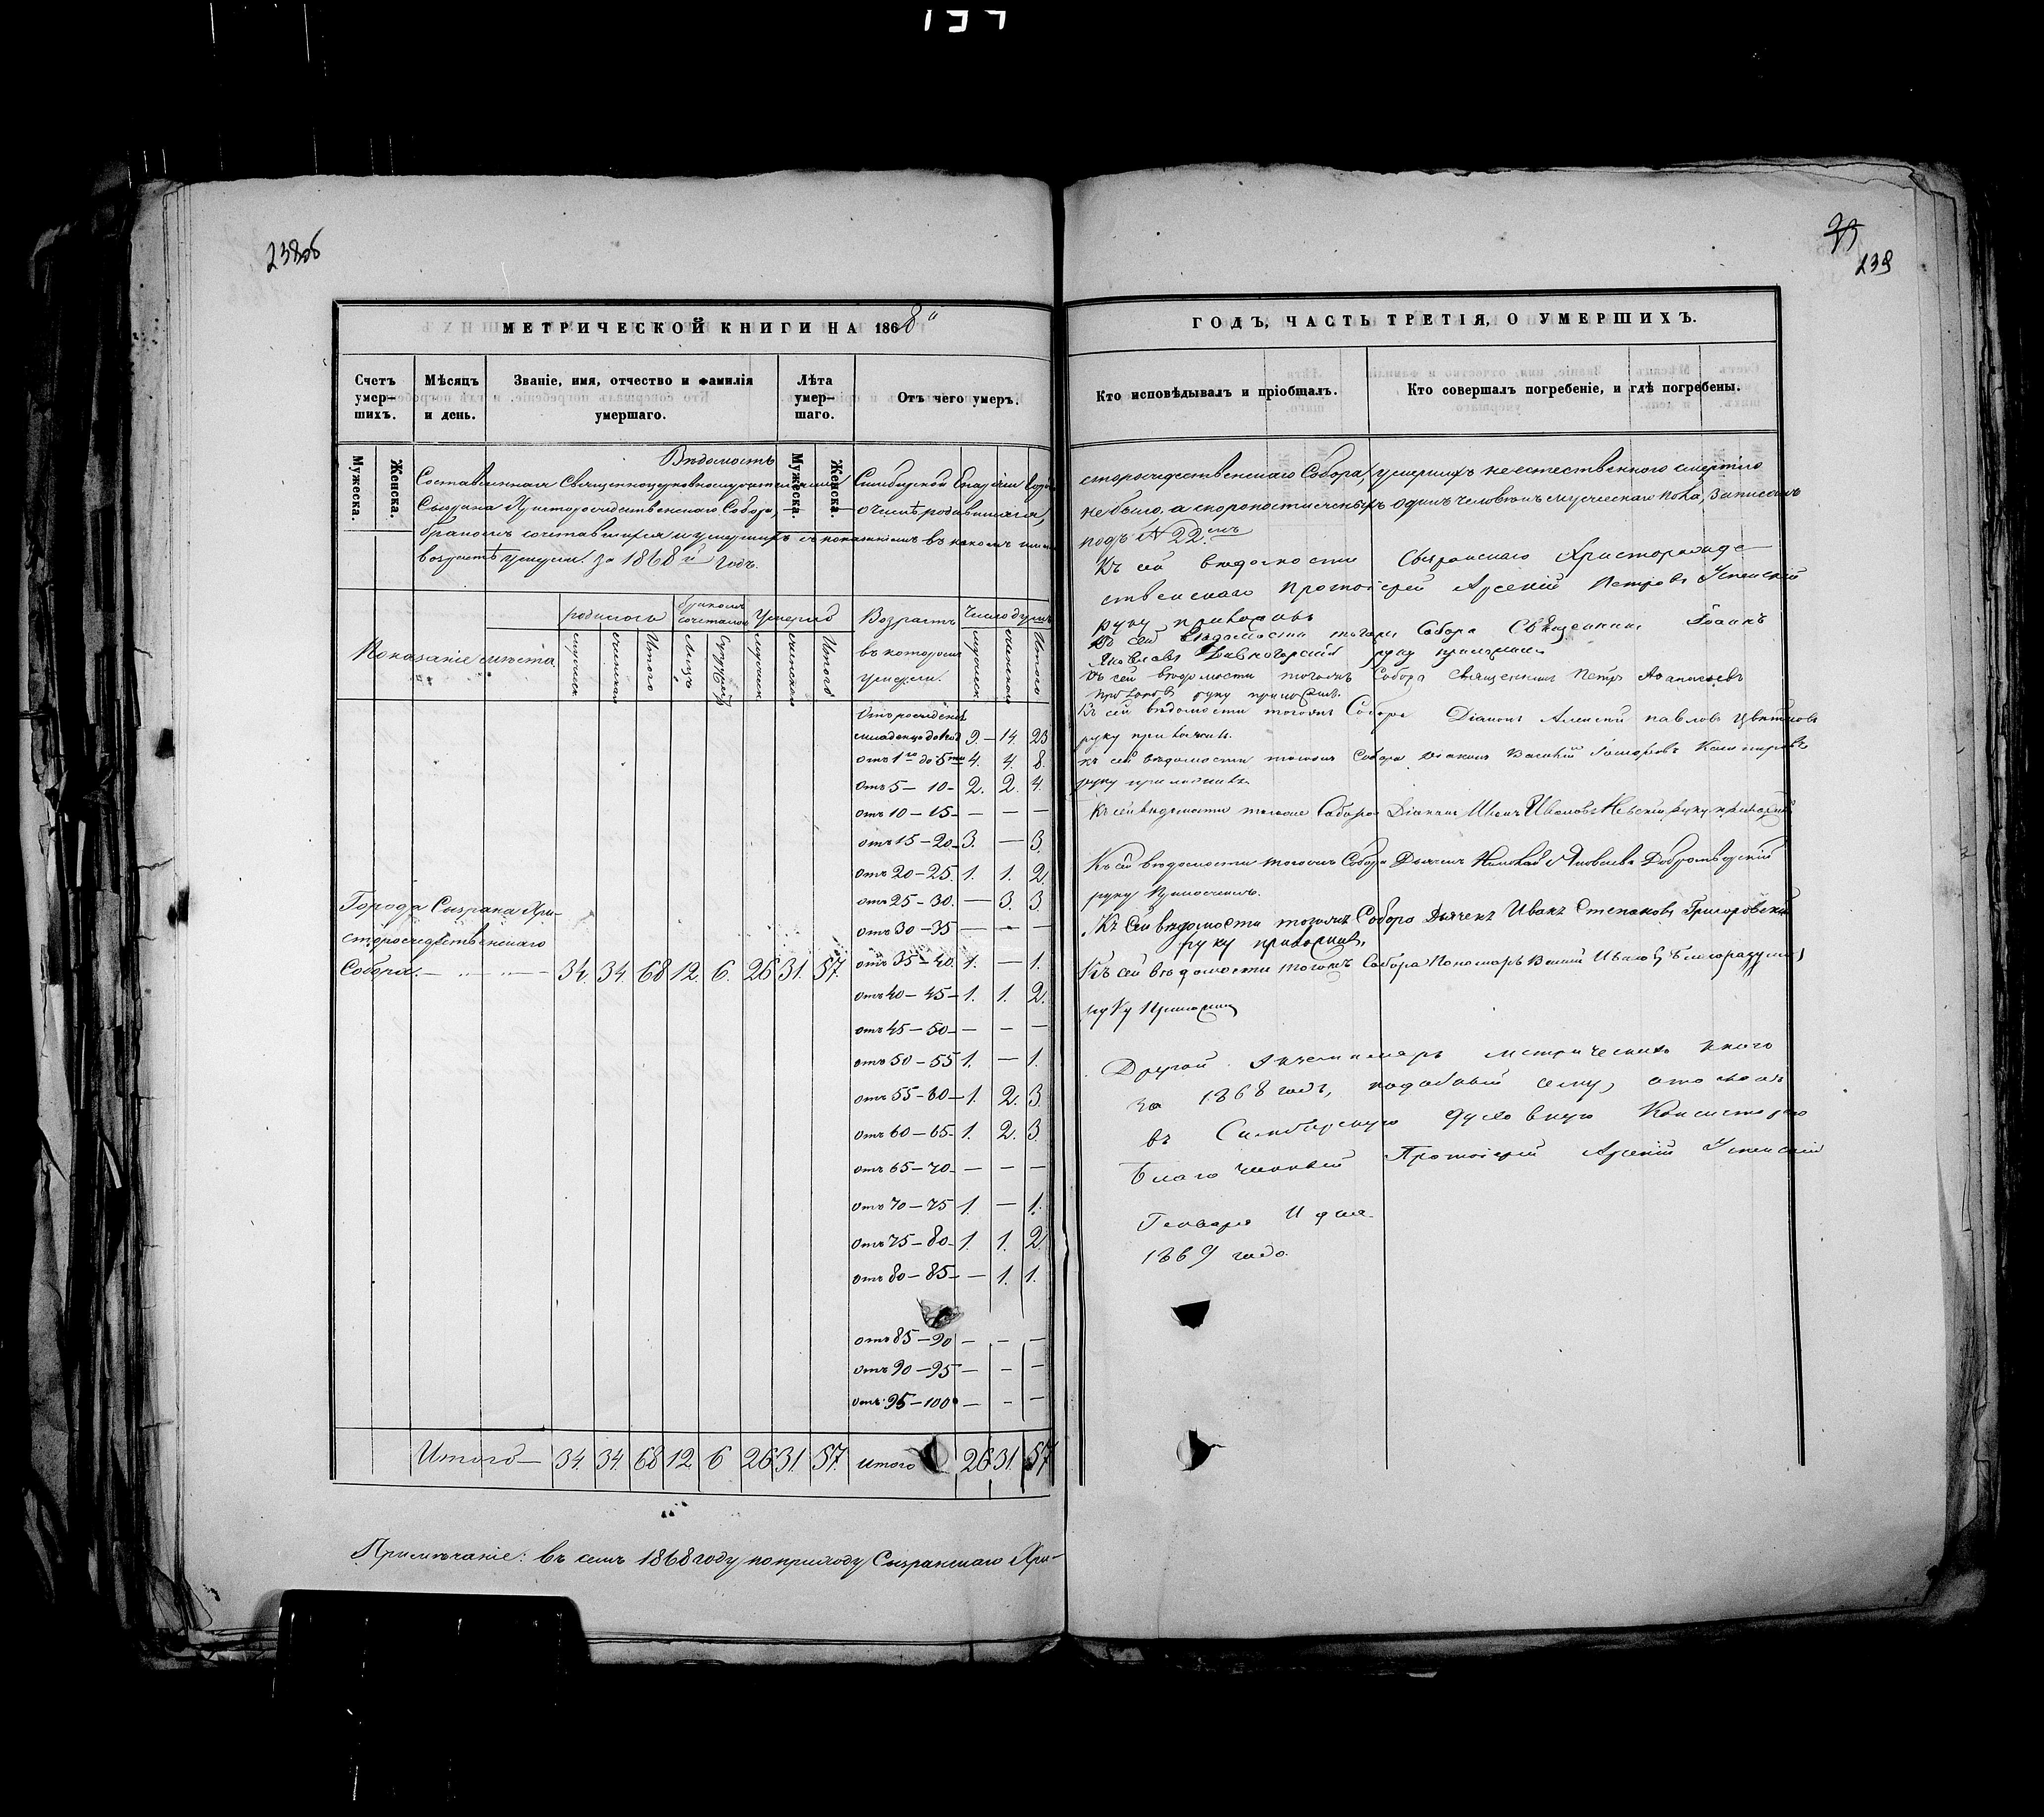 238об
МЕТРИЧЕСКОЙ КНИГИ НА 1868й
Счетъ умер-шихъ.
Мѣсяцъ и день.
Званіе, имя, отчество и фамилія умершаго.
Лѣта умер-шаго.
Отъ чего умеръ.
Мужеска.
Женска.
Мужеска.
Женска.
Вѣдомость
Составленная Священноцерковнослужителями Симбирской Епархіи Города
Сызрана Христорождественскаго Собора, — о числѣ родившихся,
бракомъ сочетавшихся и умершихъ съ показаніемъ въ какомъ
возрастѣ умерли. за 1868й годъ.
Показаніе мѣста
родилось
бракомъ сочеталось
Умерло
Возрастъ въ которомъ умерли.
Число душъ
мужеск
женска
Итого
Лицъ
Супружествъ
мужеска
женска
Итого
мужеск
женска
Итого
Отъ рожденія
младенцо до 1год 9. — 14. 23
Отъ 1го до 5ти 4. 4. 8.
Отъ 5 — 10 — 2. 2. 4.
Отъ 10 — 15 — — — —
Отъ 15 — 20 — 3. — 3.
Отъ 20 — 25. 1. 1. 2.
Отъ 25 — 30. — 3. 3.
Отъ 30 — 35 — — —
Города Сызрана Хри-
сторождественскаго
Собора. — " — " — 34. 34. 68 12. 6. 26 31. 57.
Отъ 35 — 40. 1. — 1.
Отъ 40 — 45 — 1. 1. 2.
Отъ 45 — 50 — — — —
Отъ 50 — 55 1. — 1.
Отъ 55 — 60 — 1. 2. 3
Отъ 60 — 65 — 1. 2. 3
Отъ 65 — 70 — — — —
Отъ 70 — 75 1. — 1.
Отъ 75 — 80 — 1. 1. 2
Отъ 80 — 85 — — 1. 1.
Отъ 85 — 90 — — —
Отъ 90 — 95 — — —
Отъ 95 — 100 — — —
Итого — 34. 34. 68 12 6 26 31. 57. итого 26 31. 57
Примѣчаніе: въ семъ 1868 году по приходу Сызранскаго Хри-
239
ГОДЪ, ЧАСТЬ ТРЕТІЯ, О УМЕРШИХЪ.
Кто исповѣдывалъ и пріобщалъ.
Кто совершалъ погребеніе, и гдѣ погребены.
сторождественскаго Собора, умершихъ неестественного смертію
не было, а скоропостижныхъ одинъ человѣкъ мужескаго пола, записанъ
подъ № 22мъ
Къ сей вѣдомости Сызранскаго Христорожде-
ственскаго Протоіерей Арсеній Петровъ Успенскій
руку приложилъ
Къ сей вѣдомости тогожъ Собора Священникъ Іоаннъ
Яковлевъ руку приложилъ
Къ сей вѣдомости тогожъ Собора Священникъ Петръ Афанасьевъ
руку приложилъ.
Къ сей вѣдомости тогожъ Собора Діаконъ Алексѣй Павловъ Цвѣтковъ
руку приложилъ.
Къ сей вѣдомости тогожъ Собора Діаконъ Василій
руку приложилъ.
Къ сей вѣдомости тогоже Собора Діаконъ Иванъ Ивановъ Невскій руку приложилъ
Къ сей вѣдомости тогожъ Собора Дьячекъ Николай Яковлевъ
руку приложилъ.
Къ сей вѣдомости тогожъ Собора Дьячекъ Иванъ Степановъ Григоровскій
руку приложилъ.
Къ сей вѣдомости тогожъ Собора Пономарь
руку Приложилъ
Другой экземпляръ метрическихъ книгъ
за 1868 годъ, подобный сему, отосланъ
въ Симбирскую духовную Консисторію
Благочинный Протоіерей Арсеній Успенскій
Генваря дня
1869 года.